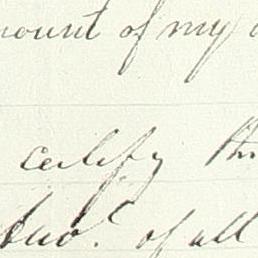 mount of my
certify th
of all